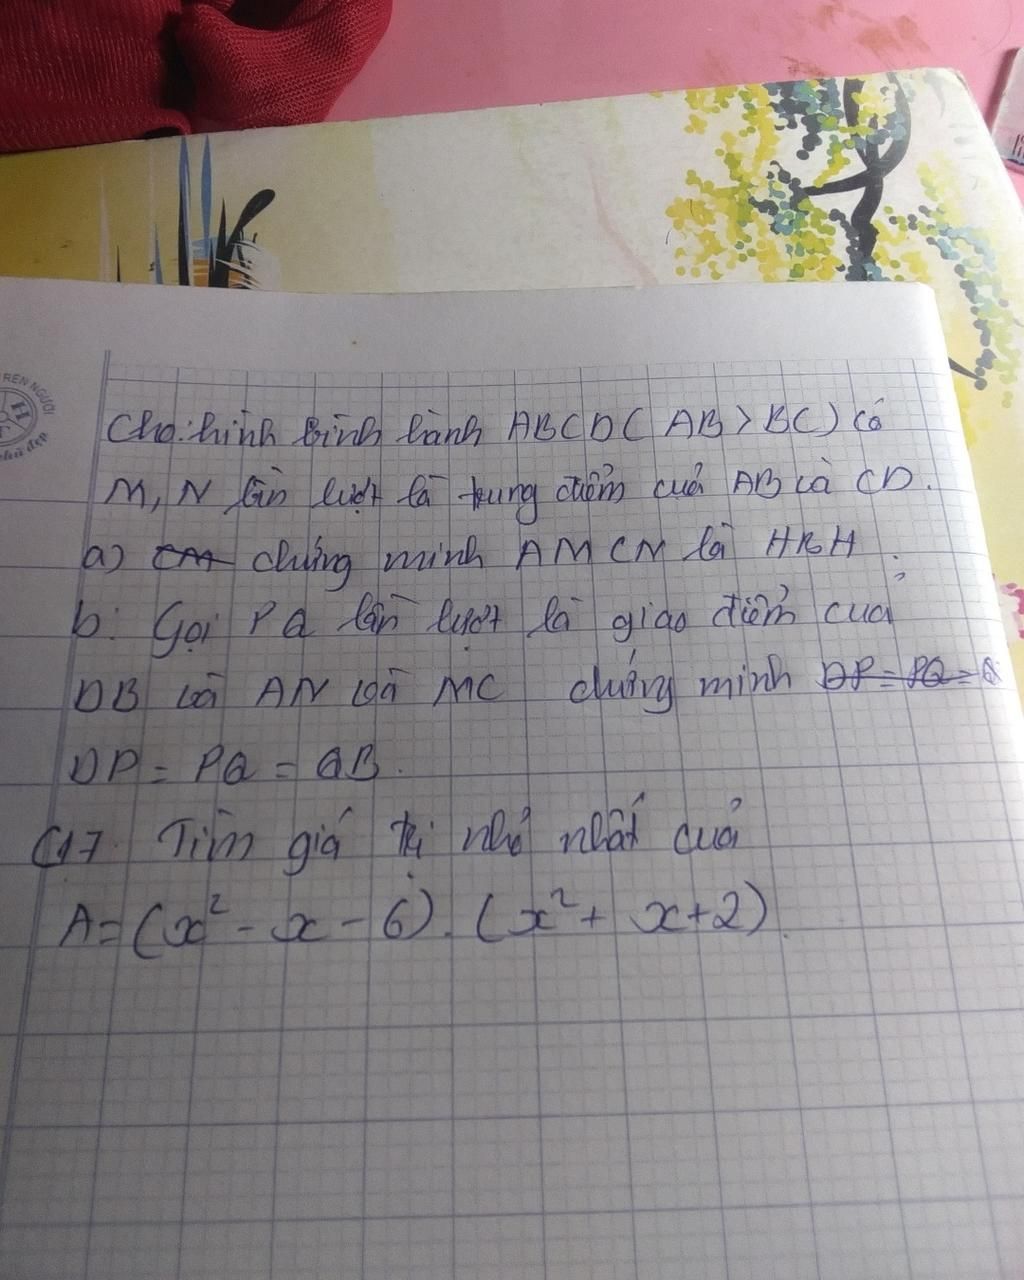 REN NGƯỜI
H
chữ đẹp
Cho: hình bình hành ABCD ( AB > BC ) có
M, N lần lượt là trung điểm của AB và CD.
a) CM chứng minh AMCN là HBH.
b: Gọi P Q lần lượt là giao điểm của
DB với AN và MC chứng minh DP = PQ = Q
DP = PQ = QB.
C17. Tìm giá trị nhỏ nhất của
A = (x² - x - 6). (x² + x + 2).